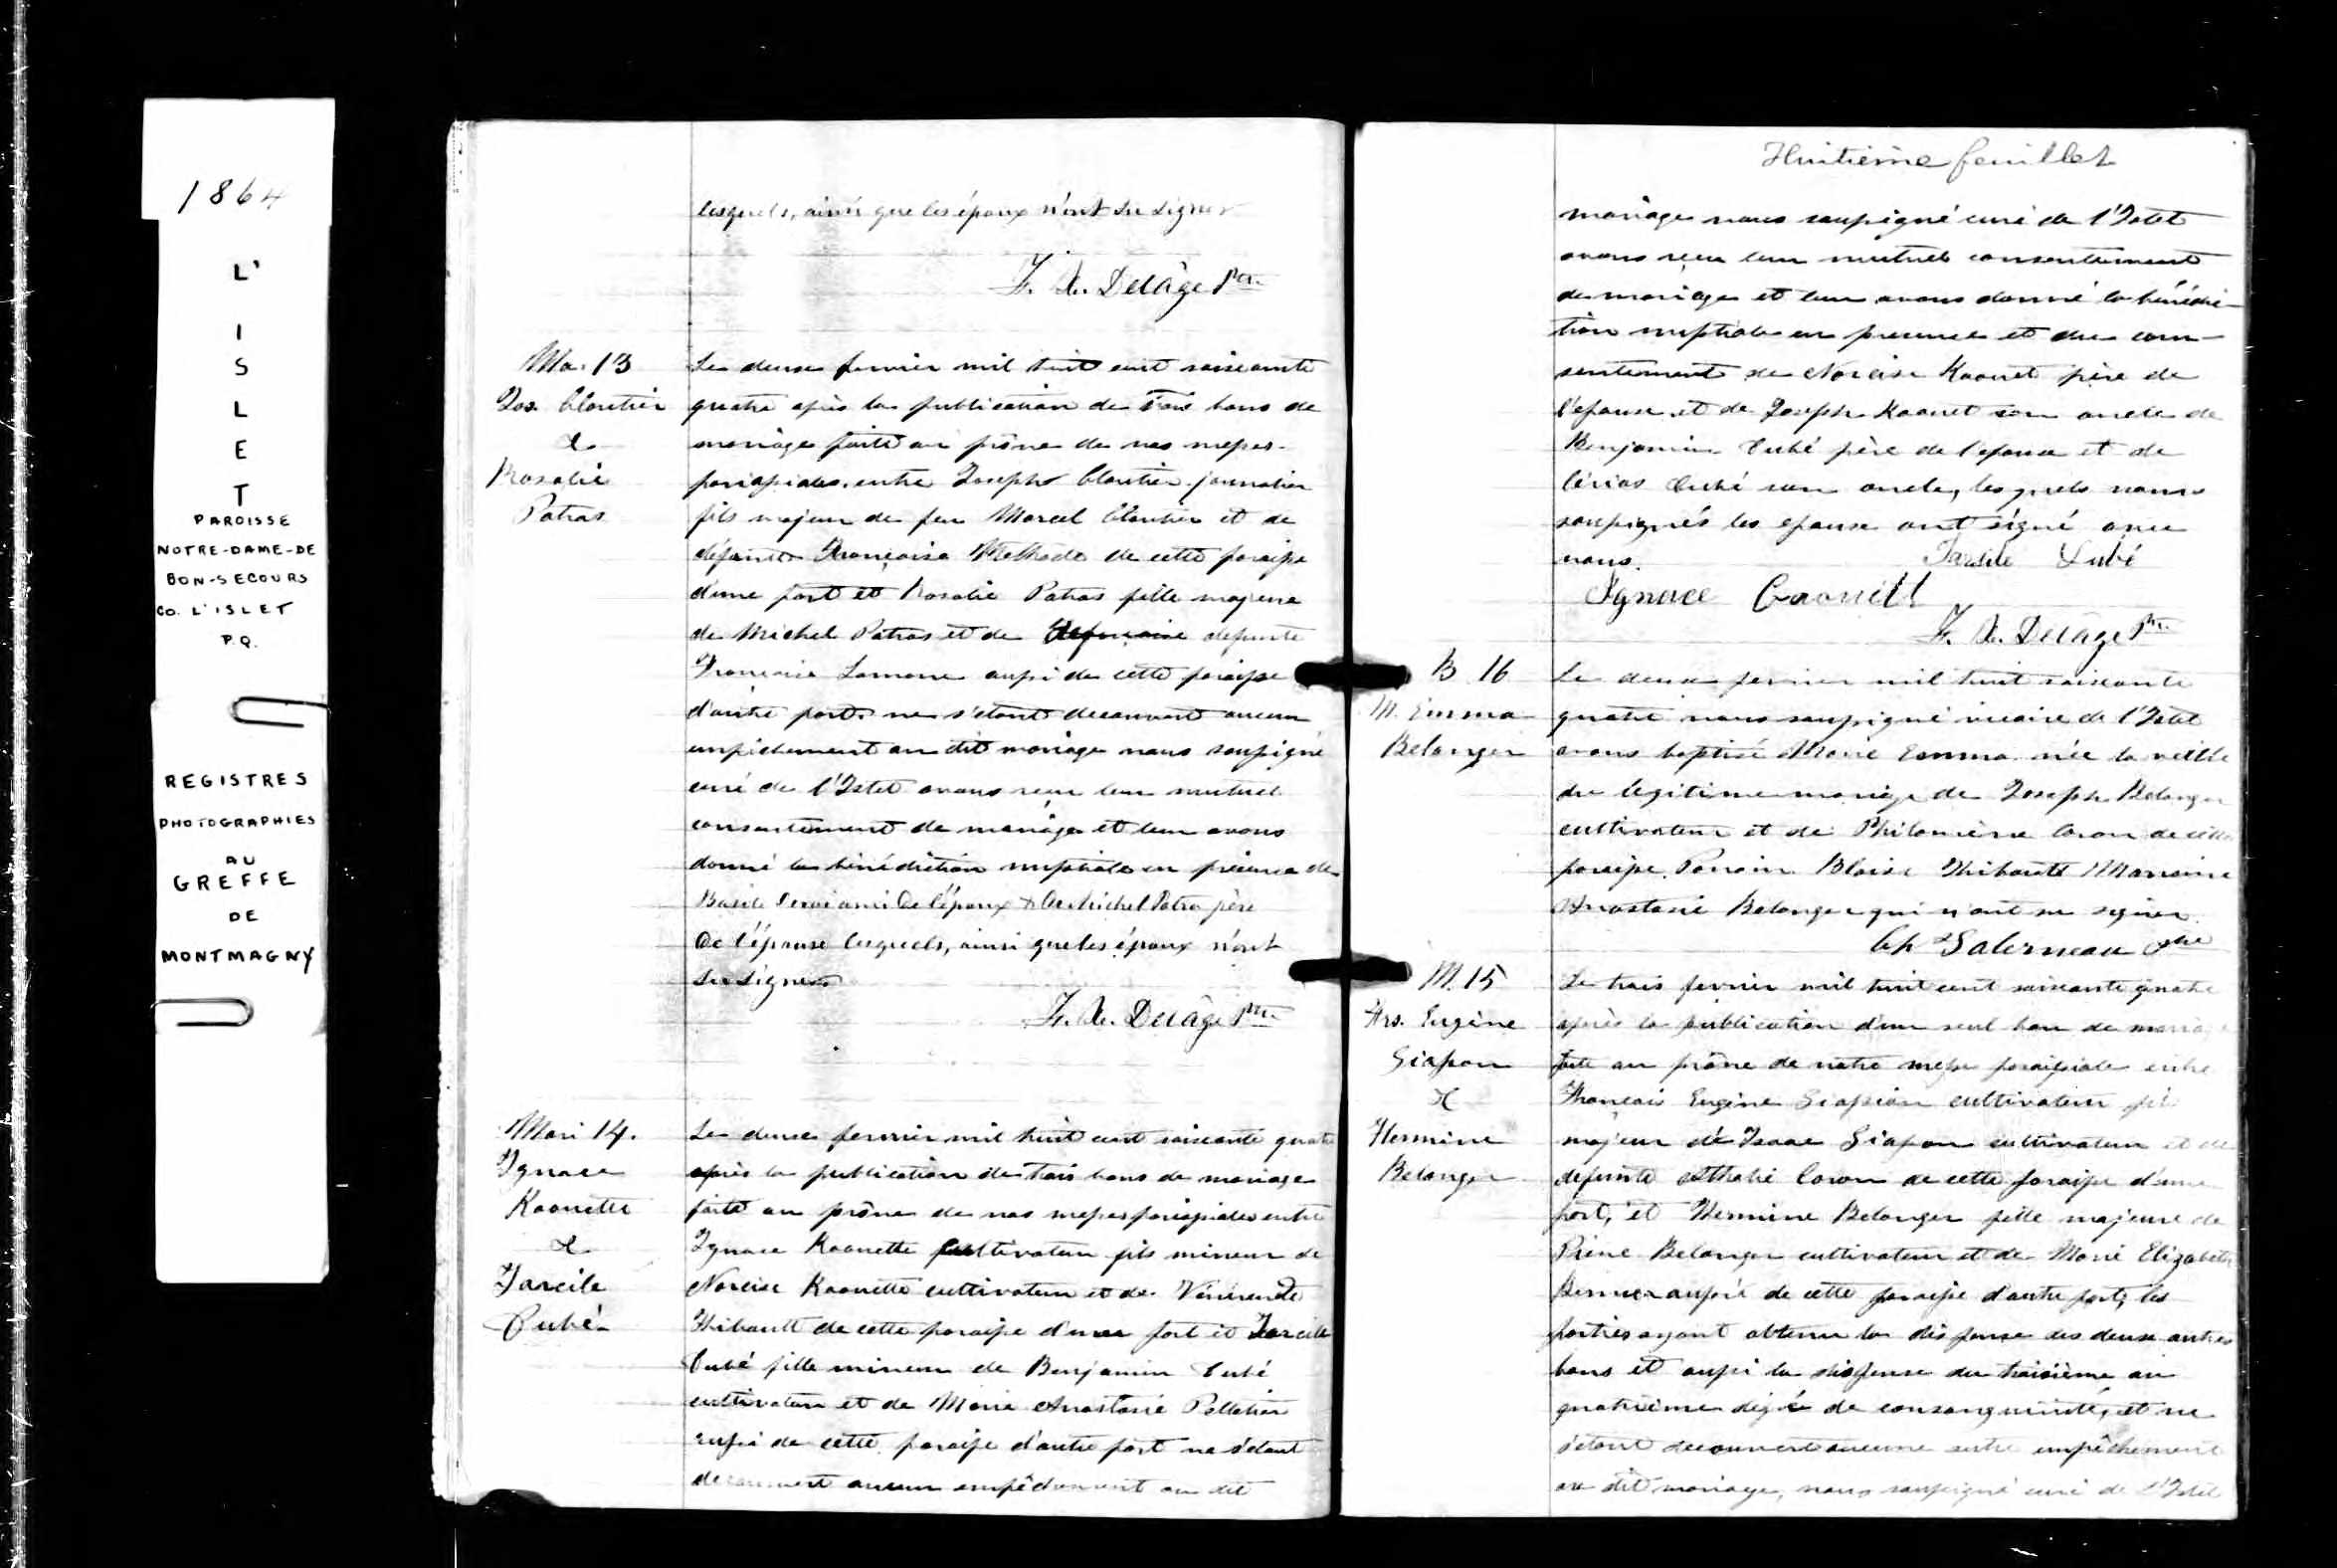 1864
L'
I
S
L
E
T
PAROISSE
NOTRE-DAME-DE
BON-SECOURS
CO. L'ISLET
P.Q.
REGISTRES
PHOTOGRAPHIES
AU
GREFFE
DE
MONTMAGNY
lesquels, ainsi que les époux n'ont su signer
F. X. Delâge Ptre
Ma. 13
Jos. Cloutier
&
Rosalie
Patras
Le deux fevrier mil huit cent soixante
quatre après la publication de trois bans de
mariage faite au prône de nos messes
paroissiales entre Joseph Cloutier journalier
fils majeur de feu Marcel Cloutier et de
défunte Françoise Methode de cette paroisse
d'une part et Rosalie Patras fille majeure
de Michel Patras et de defunte
Françoise Lamarre aussi de cette paroisse
d'autre part. ne s'étant decouvert aucun
empêchement au dit mariage nous soussigné
curé de l'Islet avons reçu leur mutuel
consentement de mariage et leur avons
donné la bénédiction nuptiale en présence de
Basile ami de l'époux & de Michel Patra père
de l'épouse lesquels, ainsi que les époux n'ont
su signer
F. X. Delâge Ptre
Mari 14.
Ignace
Kaouette
&
Tarcile
Cubé
Le deux fevrier mil huit cent soixante quatre
après la publication de trois bans de mariage
faite au prône de nos messes paroissiales entre
Ignace Kaouette cultivateur fils mineur de
Narcise Kaouette cultivateur et de Vénérende
Thibault de cette paroisse d'une part et Tarcile
Cubé fille mineure de Benjamin Cubé
cultivateur et de Marie Anastasie Pelletier
aussi de cette paroisse d'autre part ne s'étant
decouvert aucun empêchement au dit
Huitième feuillet
mariage nous soussigné curé de l'Islet
avons reçu leur mutuel consentement
de mariage et leur avons donné la bénédic-
tion nuptiale en presence et du con-
sentement de Narcise Kaouet père de
l'epoux et de Joseph Kaouet son oncle de
Benjamin Cubé père de l'epouse et de
Cubé son oncle, lesquels nous
soussignés les epoux ont signé avec
nous. Tarsile Cubé
Ignace Caouett
F. X. Delâge Ptre
B 16
M. Emma
Belanger
Le deux fevrier mil huit soixante
quatre nous soussigné vicaire de l'Islet
avons baptisé Marie Emma née la veille
du legitime mariage de Joseph Belanger
cultivateur et de Philomène Caron de cette
paroisse. Parrain Blaise Thibault Marraine
Anastasie Belanger qui n'ont su signer.
Ch Galerneau Ptre
M. 15
Frs. Eugène
Giasson
&
Hermine
Belanger
Le trois fevrier mil huit cent soixante quatre
après la publication d'un seul ban de mariage
faite au prône de notre messe paroissiale entre
François Eugène Giasson cultivateur fils
majeur de Isaac Giasson cultivateur et de
defunte Caron de cette paroisse d'une
part, et Hermine Belanger fille majeure de
Piere Belanger cultivateur et de Marie Elizabeth
Bernier aussi de cette paroisse d'autre part, les
parties ayant obtenu la dispense des deux autres
bans et aussi la dispense du troisième au
quatrième degré de consanguinité, et ne
s'étant decouvert aucune autre empêchement
au dit mariage, nous soussigné curé de l'Islet